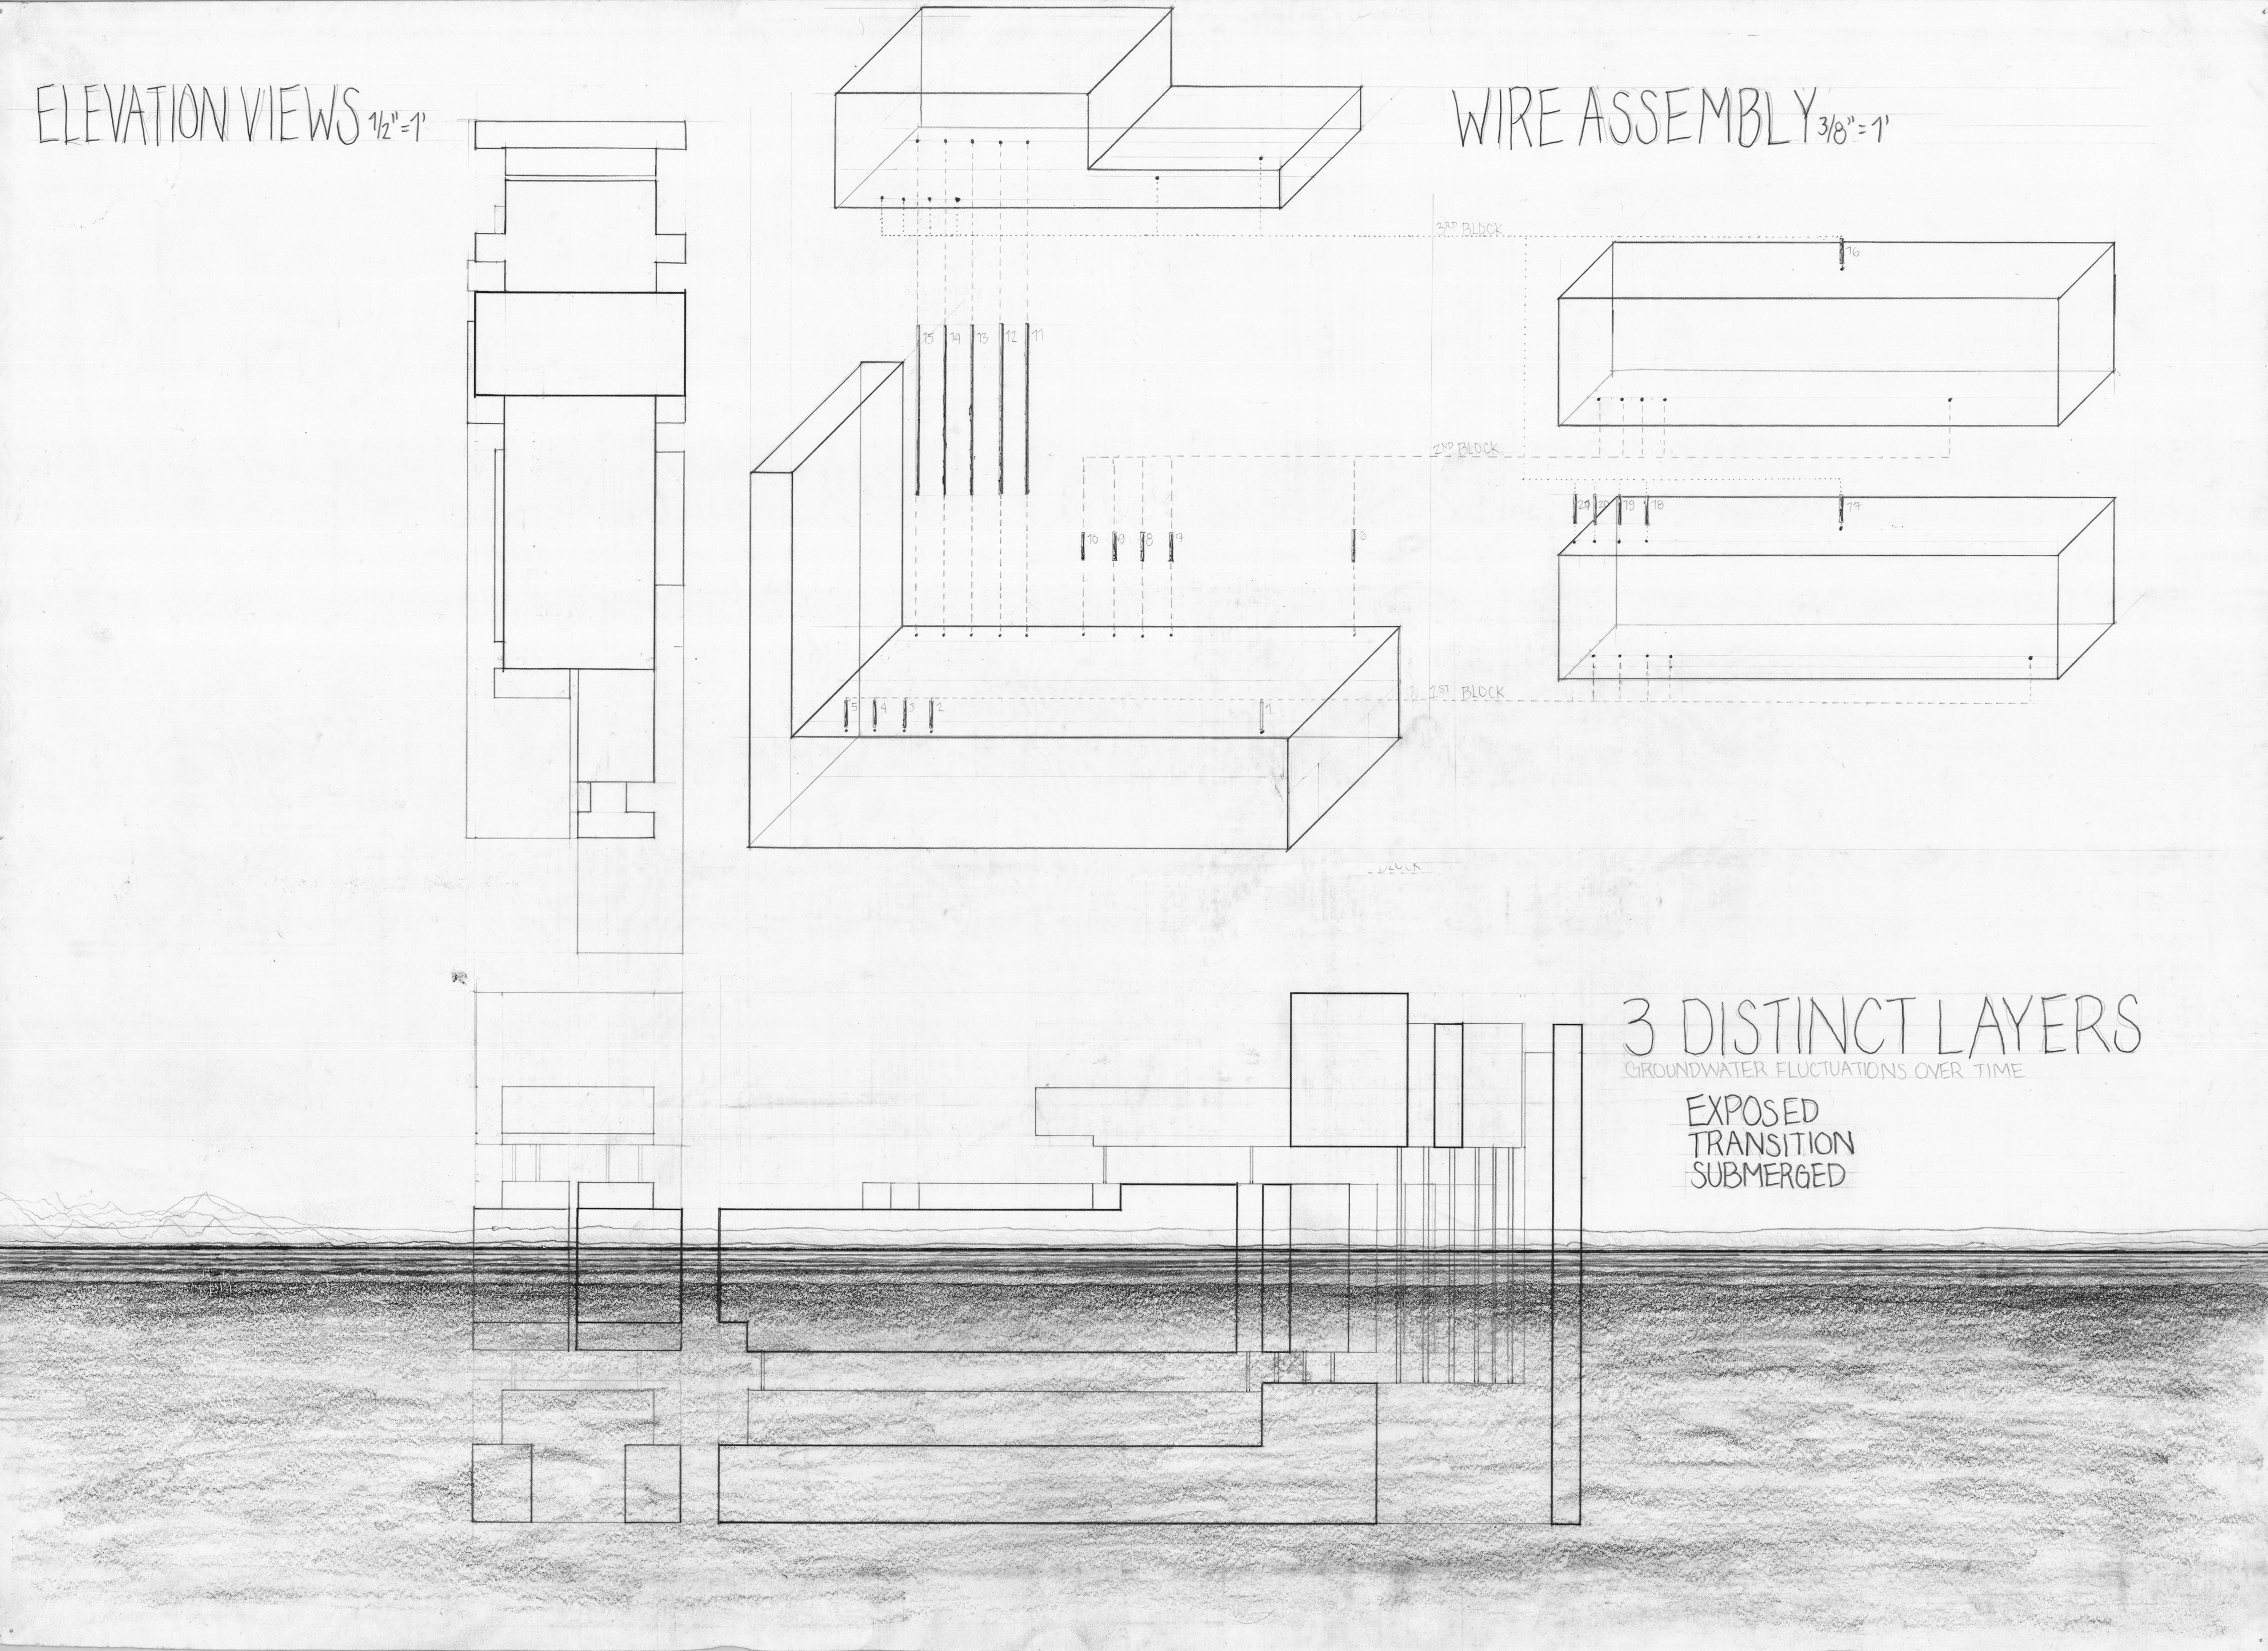 ELEVATION VIEWS 1/2"=1'
WIRE ASSEMBLY 3/8"=1'
3RD BLOCK
16
15 14 13 12 11
2ND BLOCK
10 9 8 7 6
20 19 18 17
1ST BLOCK
5 4 3 2 1
3 DISTINCT LAYERS
GROUNDWATER FLUCTUATIONS OVER TIME
EXPOSED
TRANSITION
SUBMERGED